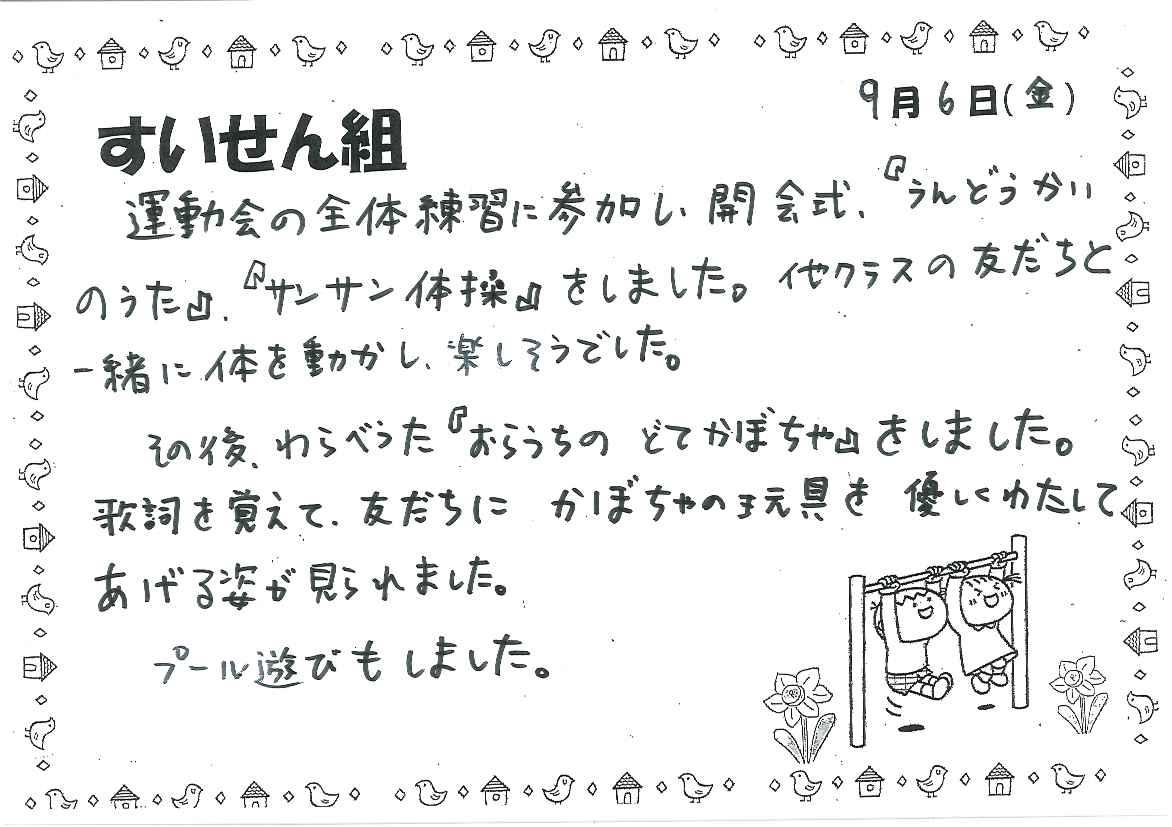 9月6日(金)
すいせん組
運動会の全体練習に参加し、開会式、『うんどうかい
のうた』、『サンサン体操』をしました。他クラスの友だちと
一緒に体を動かし、楽しそうでした。
その後、わらべうた『おらうちの どてかぼちゃ』をしました。
歌詞を覚えて、友だちに かぼちゃの玩具を 優しくわたして
あげる姿が見られました。
プール遊びもしました。